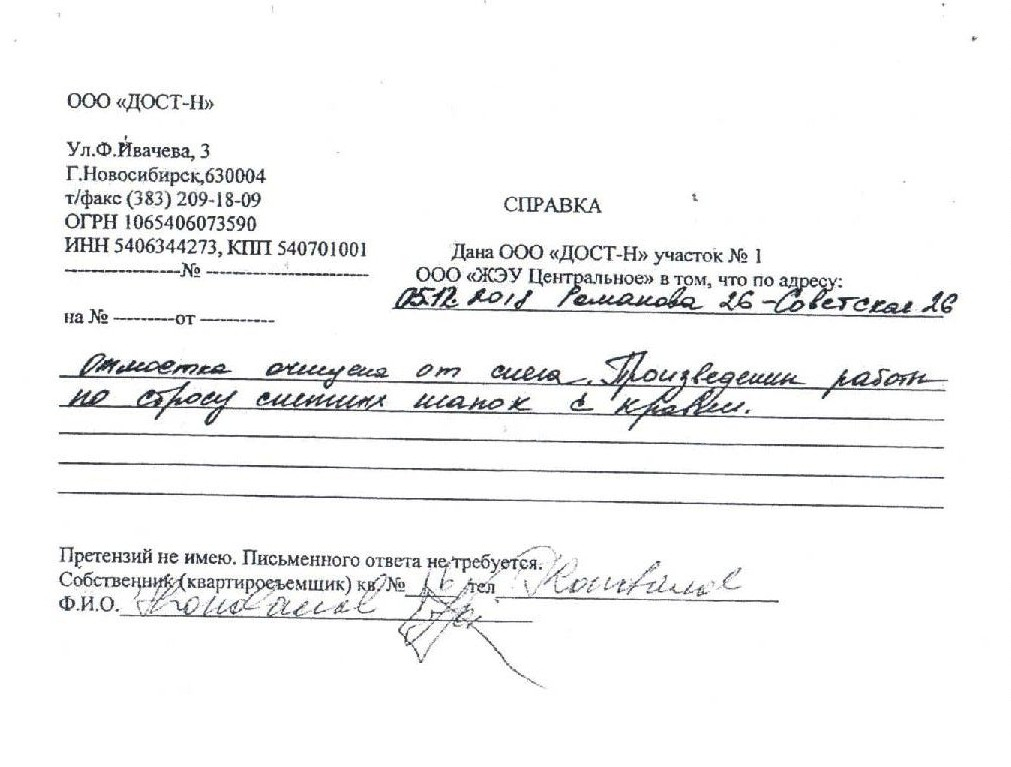 ООО «ДОСТ-Н»
Ул.Ф.Ивачева, 3
Г.Новосибирск,630004
т/факс (383) 209-18-09
ОГРН 1065406073590
ИНН 5406344273, КПП 540701001
------------------№ -------------------------
на № ---------от -----------
СПРАВКА
Дана ООО «ДОСТ-Н» участок № 1
ООО «ЖЭУ Центральное» в том, что по адресу:
05.12.2018 Романова 26 - Советская 26
Отмостка очищена от снега. Произведены работы
по сбросу снежных шапок с кровли.
Претензий не имею. Письменного ответа не требуется.
Собственник (квартиросъемщик) кв. № 16 тел Коновалов
Ф.И.О. Коновалов